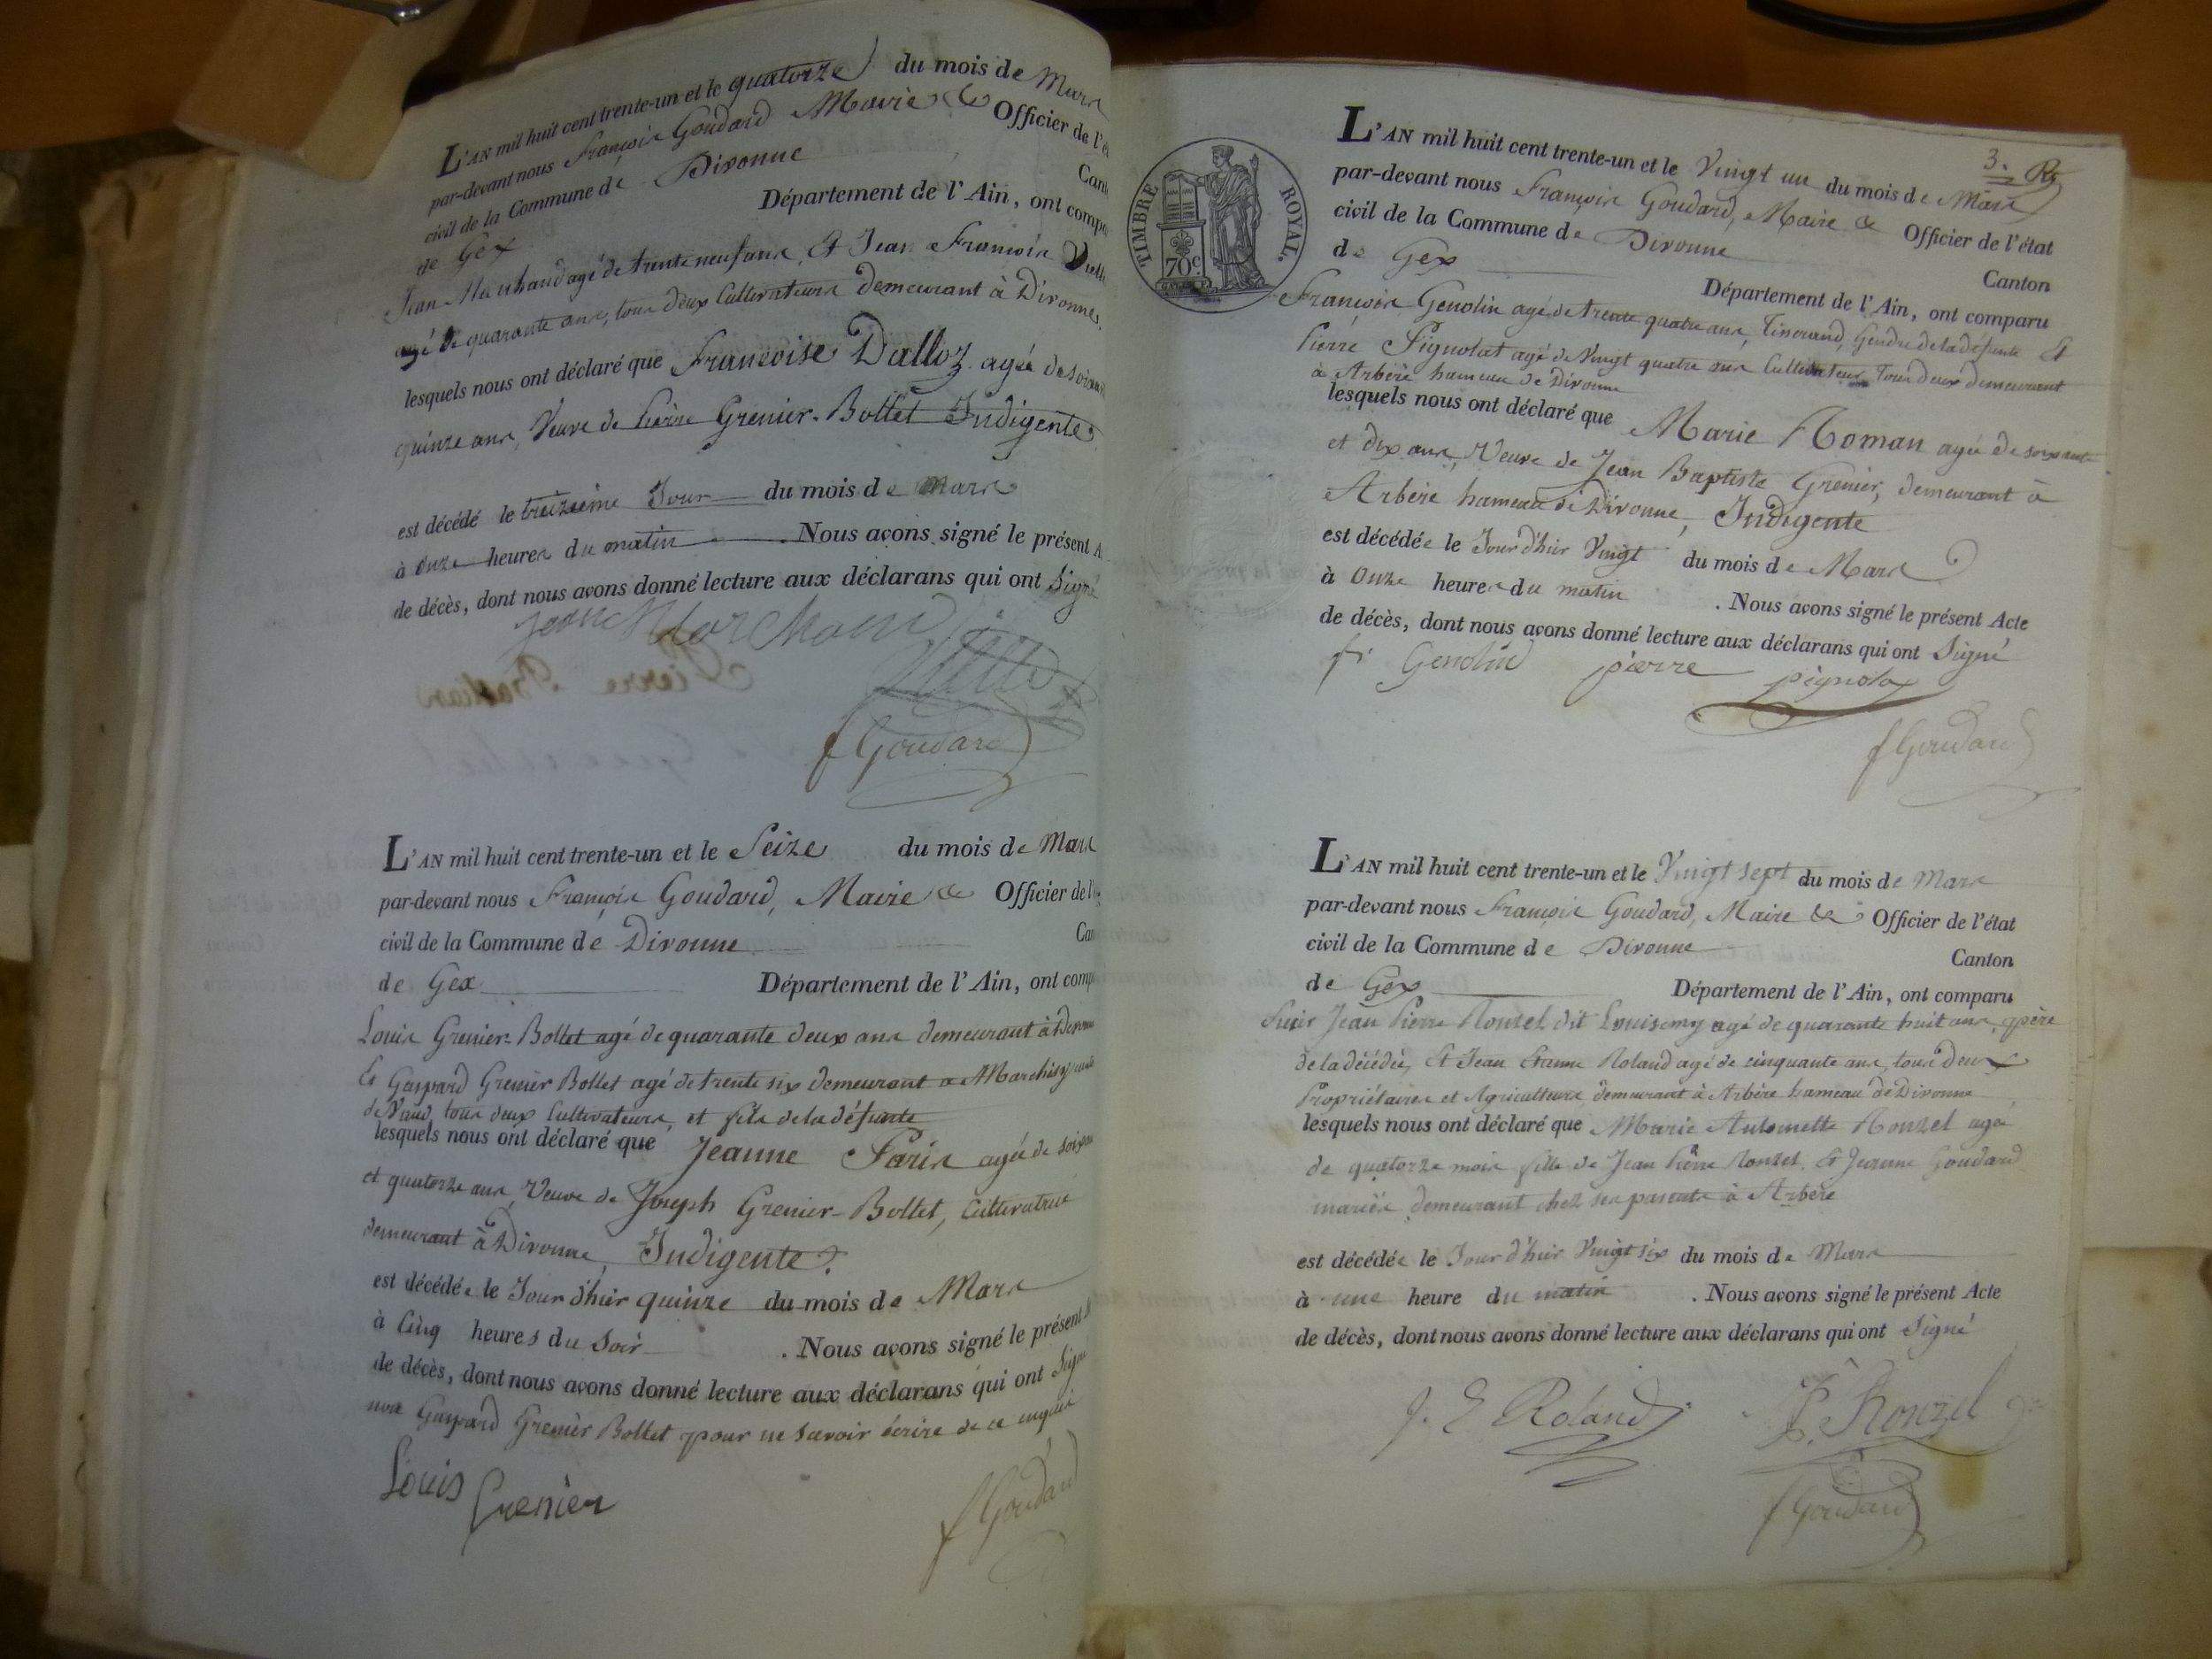 L'AN mil huit cent trente-un et le quatorze du mois de Mars
par-devant nous François Goudard Maire & Officier de l'ét
civil de la Commune de Divonne Cant
de Gex Département de l'Ain, ont compa
Jean Marchand agé de trente neuf ans, Et Jean François
agé de quarante ans, tous deux Cultivateurs demeurant à Divonne,
lesquels nous ont déclaré que Francoise Dalloz agée de soixante
quinze ans, Veuve de Pierre Grenier-Bollet Indigente
est décédé le treizieme Jour du mois de Mars
à onze heures du matin . Nous avons signé le présent A
de décès, dont nous avons donné lecture aux déclarans qui ont Signé
Jean Marchand
f Goudard
L'AN mil huit cent trente-un et le Seize du mois de Mars
par-devant nous François Goudard, Maire & Officier de l'
civil de la Commune de Divonne Can
de Gex Département de l'Ain, ont comp
Louis Grenier-Bollet agé de quarante deux ans demeurant à Divonne
Et Gaspard Grenier Bollet agé de trente six demeurant a Marchissy
de Vaud, tous deux Cultivateurs, et fils de la défunte
lesquels nous ont déclaré que Jeanne Paris agée de soixante
et quatorze ans, Veuve de Joseph Grenier-Bollet, Cultivatrice
demeurant à Divonne, Indigente.
est décédée le Jour d'hier quinze du mois de Mars
à Cinq heures du Soir . Nous avons signé le présent A
de décès, dont nous avons donné lecture aux déclarans qui ont Signé
non Gaspard Grenier Bollet pour ne savoir écrire de ce enquis
Louis Grenier
f Goudard
3.
TIMBRE ROYAL.
70c
L'AN mil huit cent trente-un et le Vingt un du mois de Mars
par-devant nous François Goudard, Maire & Officier de l'état
civil de la Commune de Divonne Canton
de Gex Département de l'Ain, ont comparu
François Genolin agé de trente quatre ans, Tisserand, Gendre de la défunte Et
Pierre Pignolat agé de Vingt quatre ans Cultivateur Tous deux demeurant
à Arbère hameau de Divonne
lesquels nous ont déclaré que Marie Roman agée de soixante
et dix ans, Veuve de Jean Baptiste Grenier, demeurant à
Arbère hameau de Divonne, Indigente
est décédée le Jour d'hier Vingt du mois de Mars
à Onze heures du matin . Nous avons signé le présent Acte
de décès, dont nous avons donné lecture aux déclarans qui ont Signé
fs Genolin pierre pignolat
f Goudard
L'AN mil huit cent trente-un et le Vingt sept du mois de Mars
par-devant nous François Goudard, Maire & Officier de l'état
civil de la Commune de Divonne Canton
de Gex Département de l'Ain, ont comparu
Jean Pierre Rouzel dit agé de quarante huit ans, père
de la décédée, Et Jean Etienne Roland agé de cinquante ans, tous deux
Propriétaires et Agriculteurs demeurant à Arbère hameau de Divonne
lesquels nous ont déclaré que Marie Antoinette Rouzel agée
de quatorze mois fille de Jean Pierre Rouzel, Et Jeanne Goudard
mariés demeurant chez ses parents à Arbère
est décédée le Jour d'hier Vingt six du mois de Mars
à une heure du matin . Nous avons signé le présent Acte
de décès, dont nous avons donné lecture aux déclarans qui ont Signé
J. E Roland J. P. Rouzel
f Goudard